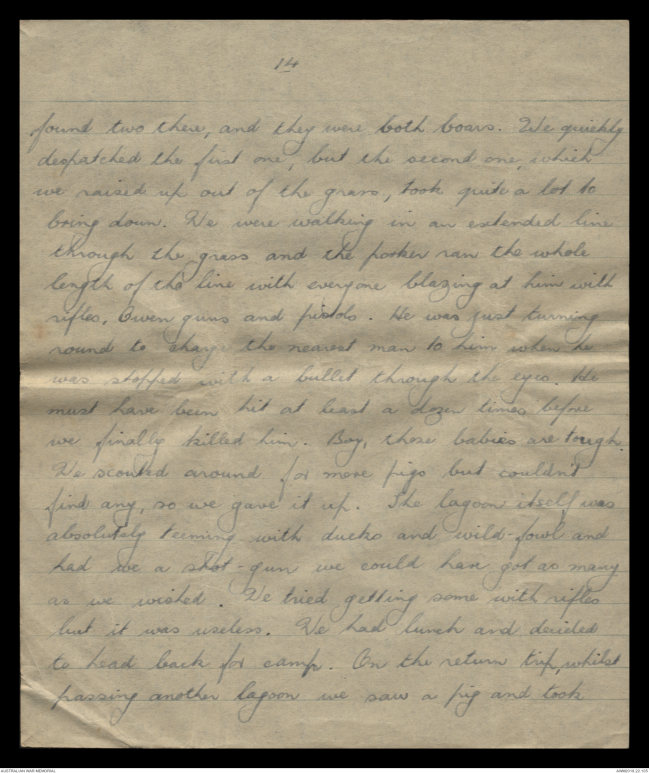 14
found two there, and they were both boars. We quickly
despatched the first one, but the second one, which
we raised up out of the grass, took quite a lot to
bring down. We were walking in an extended line
through the grass and the porker ran the whole
length of the line with everyone blazing at him with
rifles, Owen guns and pistols. He was just turning
round to charge the nearest man to him when he
was stopped with a bullet through the eyes. He
must have been hit at least a dozen times before
we finally killed him. Boy, those babies are tough.
We scouted around for more pigs but couldn't
find any, so we gave it up. The lagoon itself was
absolutely teeming with ducks and wild-fowl and
had we a shot-gun we could have got as many
as we wished. We tried getting some with rifles
but it was useless. We had lunch and decided
to head back for camp. On the return trip, whilst
passing another lagoon we saw a pig and took
AUSTRALIAN WAR MEMORIAL